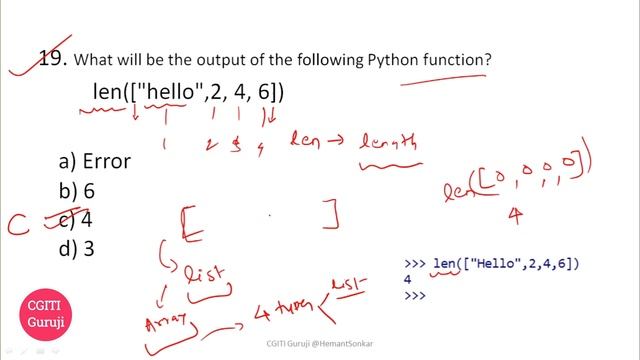 19. What will be the output of the following Python function?
len(["hello",2, 4, 6])
1 2 3 4
len → length
a) Error
b) 6
c) 4
d) 3
C
len([0,0,0,0])
4
[ ]
list
Array
4 types
list
>>> len(["Hello",2,4,6])
4
>>>
CGITI
Guruji
CGITI Guruji @HemantSonkar